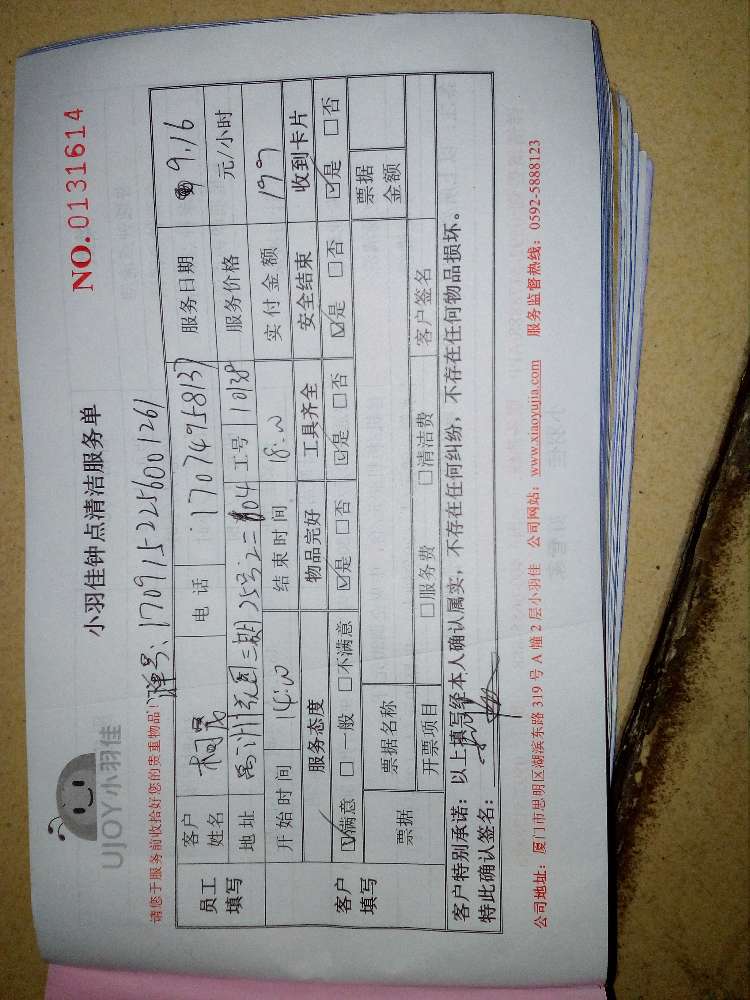 UJOY小羽佳
小羽佳钟点清洁服务单
NO. 0131614
请您于服务前收拾好您的贵重物品！ 单号:1709152256001261
员工填写 客户姓名 电话 17074958137 服务日期 9.16
地址 二期25号之二104 工号 10138 服务价格 元/小时
开始时间 14:00 结束时间 18:00 实付金额 199
客户填写 服务态度 物品完好 工具齐全 安全结束 收到卡片
☑满意 □一般 □不满意 ☑是 □否 ☑是 □否 ☑是 □否 ☑是 □否
票据 票据名称 票据金额
开票项目 □服务费 □清洁费 客户签名
客户特别承诺：以上填写经本人确认属实，不存在任何纠纷，不存在任何物品损坏。
特此确认签名：
公司地址：厦门市思明区湖滨东路 319 号 A 幢 2 层小羽佳 公司网站：www.xiaoyujia.com 服务监督热线：0592-5888123